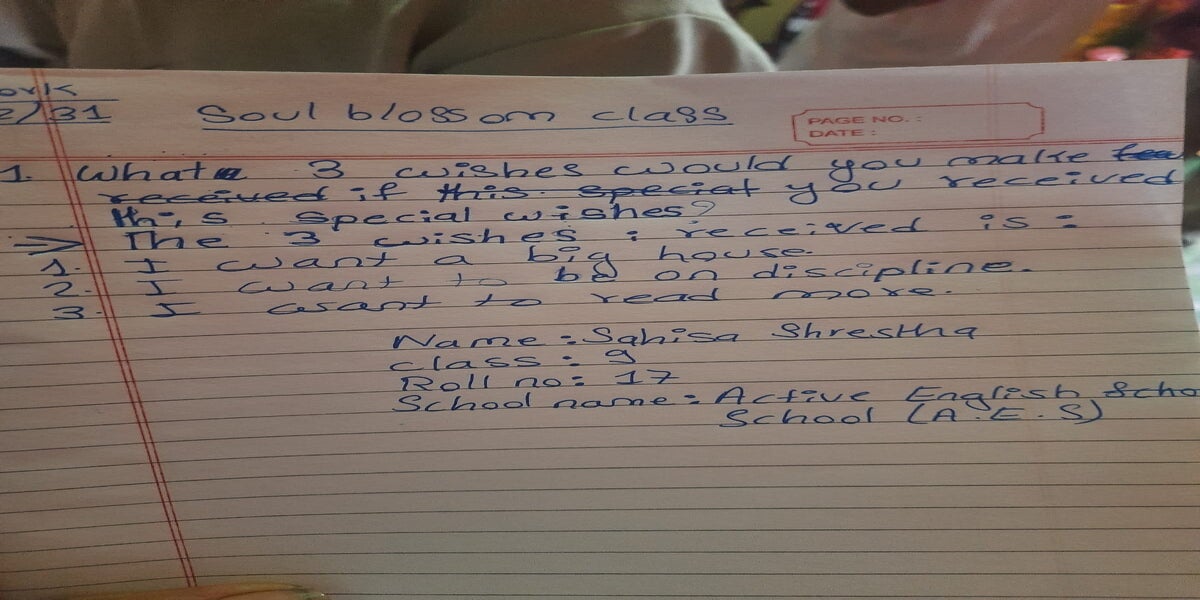 ork
2/31
Soul blossom class
PAGE NO. :
DATE :
1. What 3 wishes would you make
received if this special you received
this special wishes?
=> The 3 wishes i received is :
1. I want a big house.
2. I want to be on discipline.
3. I want to read more.
Name : Sahisa Shrestha
class : 9
Roll no : 17
School name : Active English Scho
School (A.E.S)